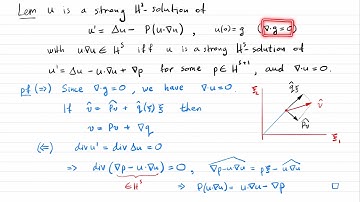 Lem u is a strong H^s-solution of
u' = Δu - P(u·∇u) , u(0)=g (∇·g=0)
with u·∇u ∈ H^s iff u is a strong H^s-solution of
u' = Δu - u·∇u + ∇p for some p∈H^{s+1}, and ∇·u=0.
pf (⇒) Since ∇·g=0, we have ∇·u=0.
If v̂ = P̂v + q̂(ξ) ξ then
v = Pv + ∇q
(⇐) div u' = div Δu = 0
⇒ div (∇p - u·∇u) = 0, \widehat{∇p - u·∇u} = pξ - \widehat{u·∇u}
∈ H^s ⇒ P(u·∇u) = u·∇u - ∇p □
ξ_2
q̂ξ
v̂
P̂v
ξ_1